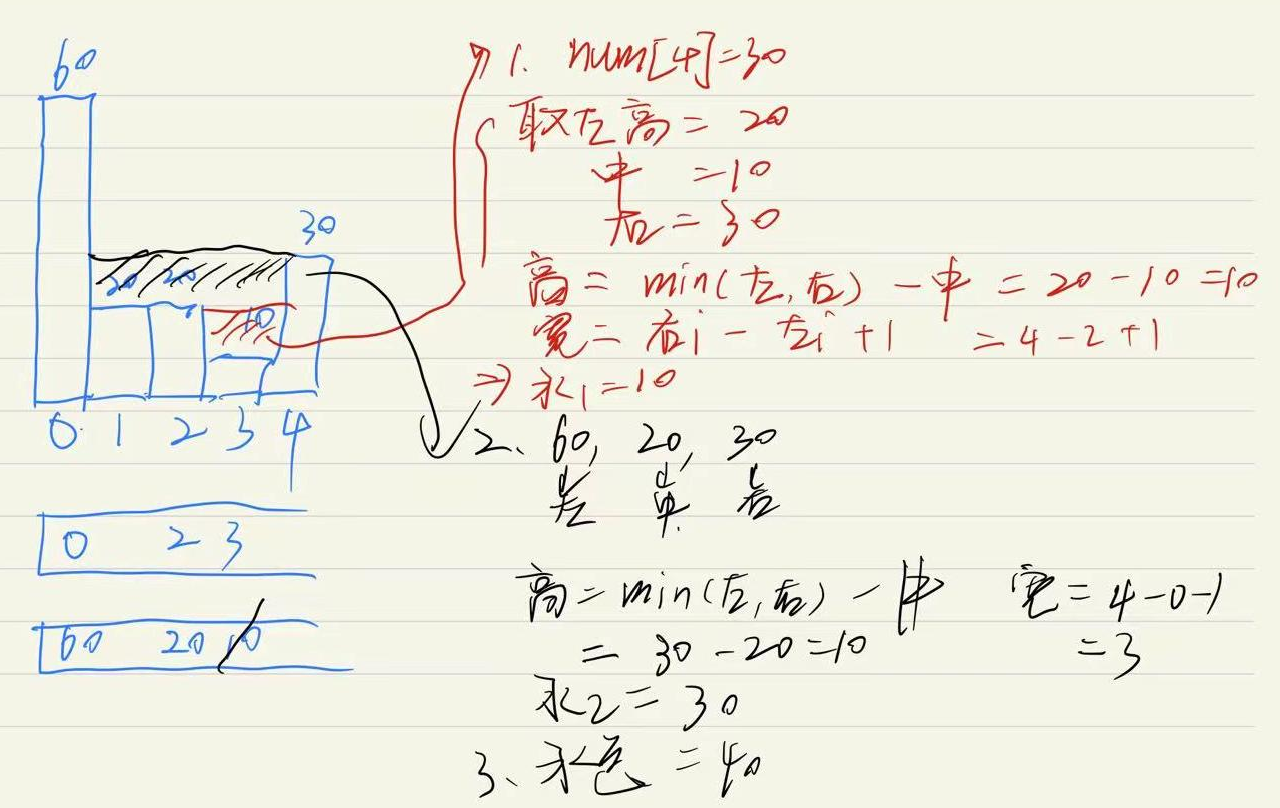 60
30
20 20
10
0 1 2 3 4
0 2 3
60 20 10
1. num[4]=30
取左高 = 20
中 =10
右 = 30
高 = min(左,右) - 中 = 20 - 10 =10
宽 = 右i - 左i + 1 = 4 - 2 + 1
=> 水1=10
2、60, 20, 30
左 中 右
高 = min(左,右) - 中 宽 = 4-0-1
= 30 - 20 =10 =3
水2 = 30
3、水总 = 40